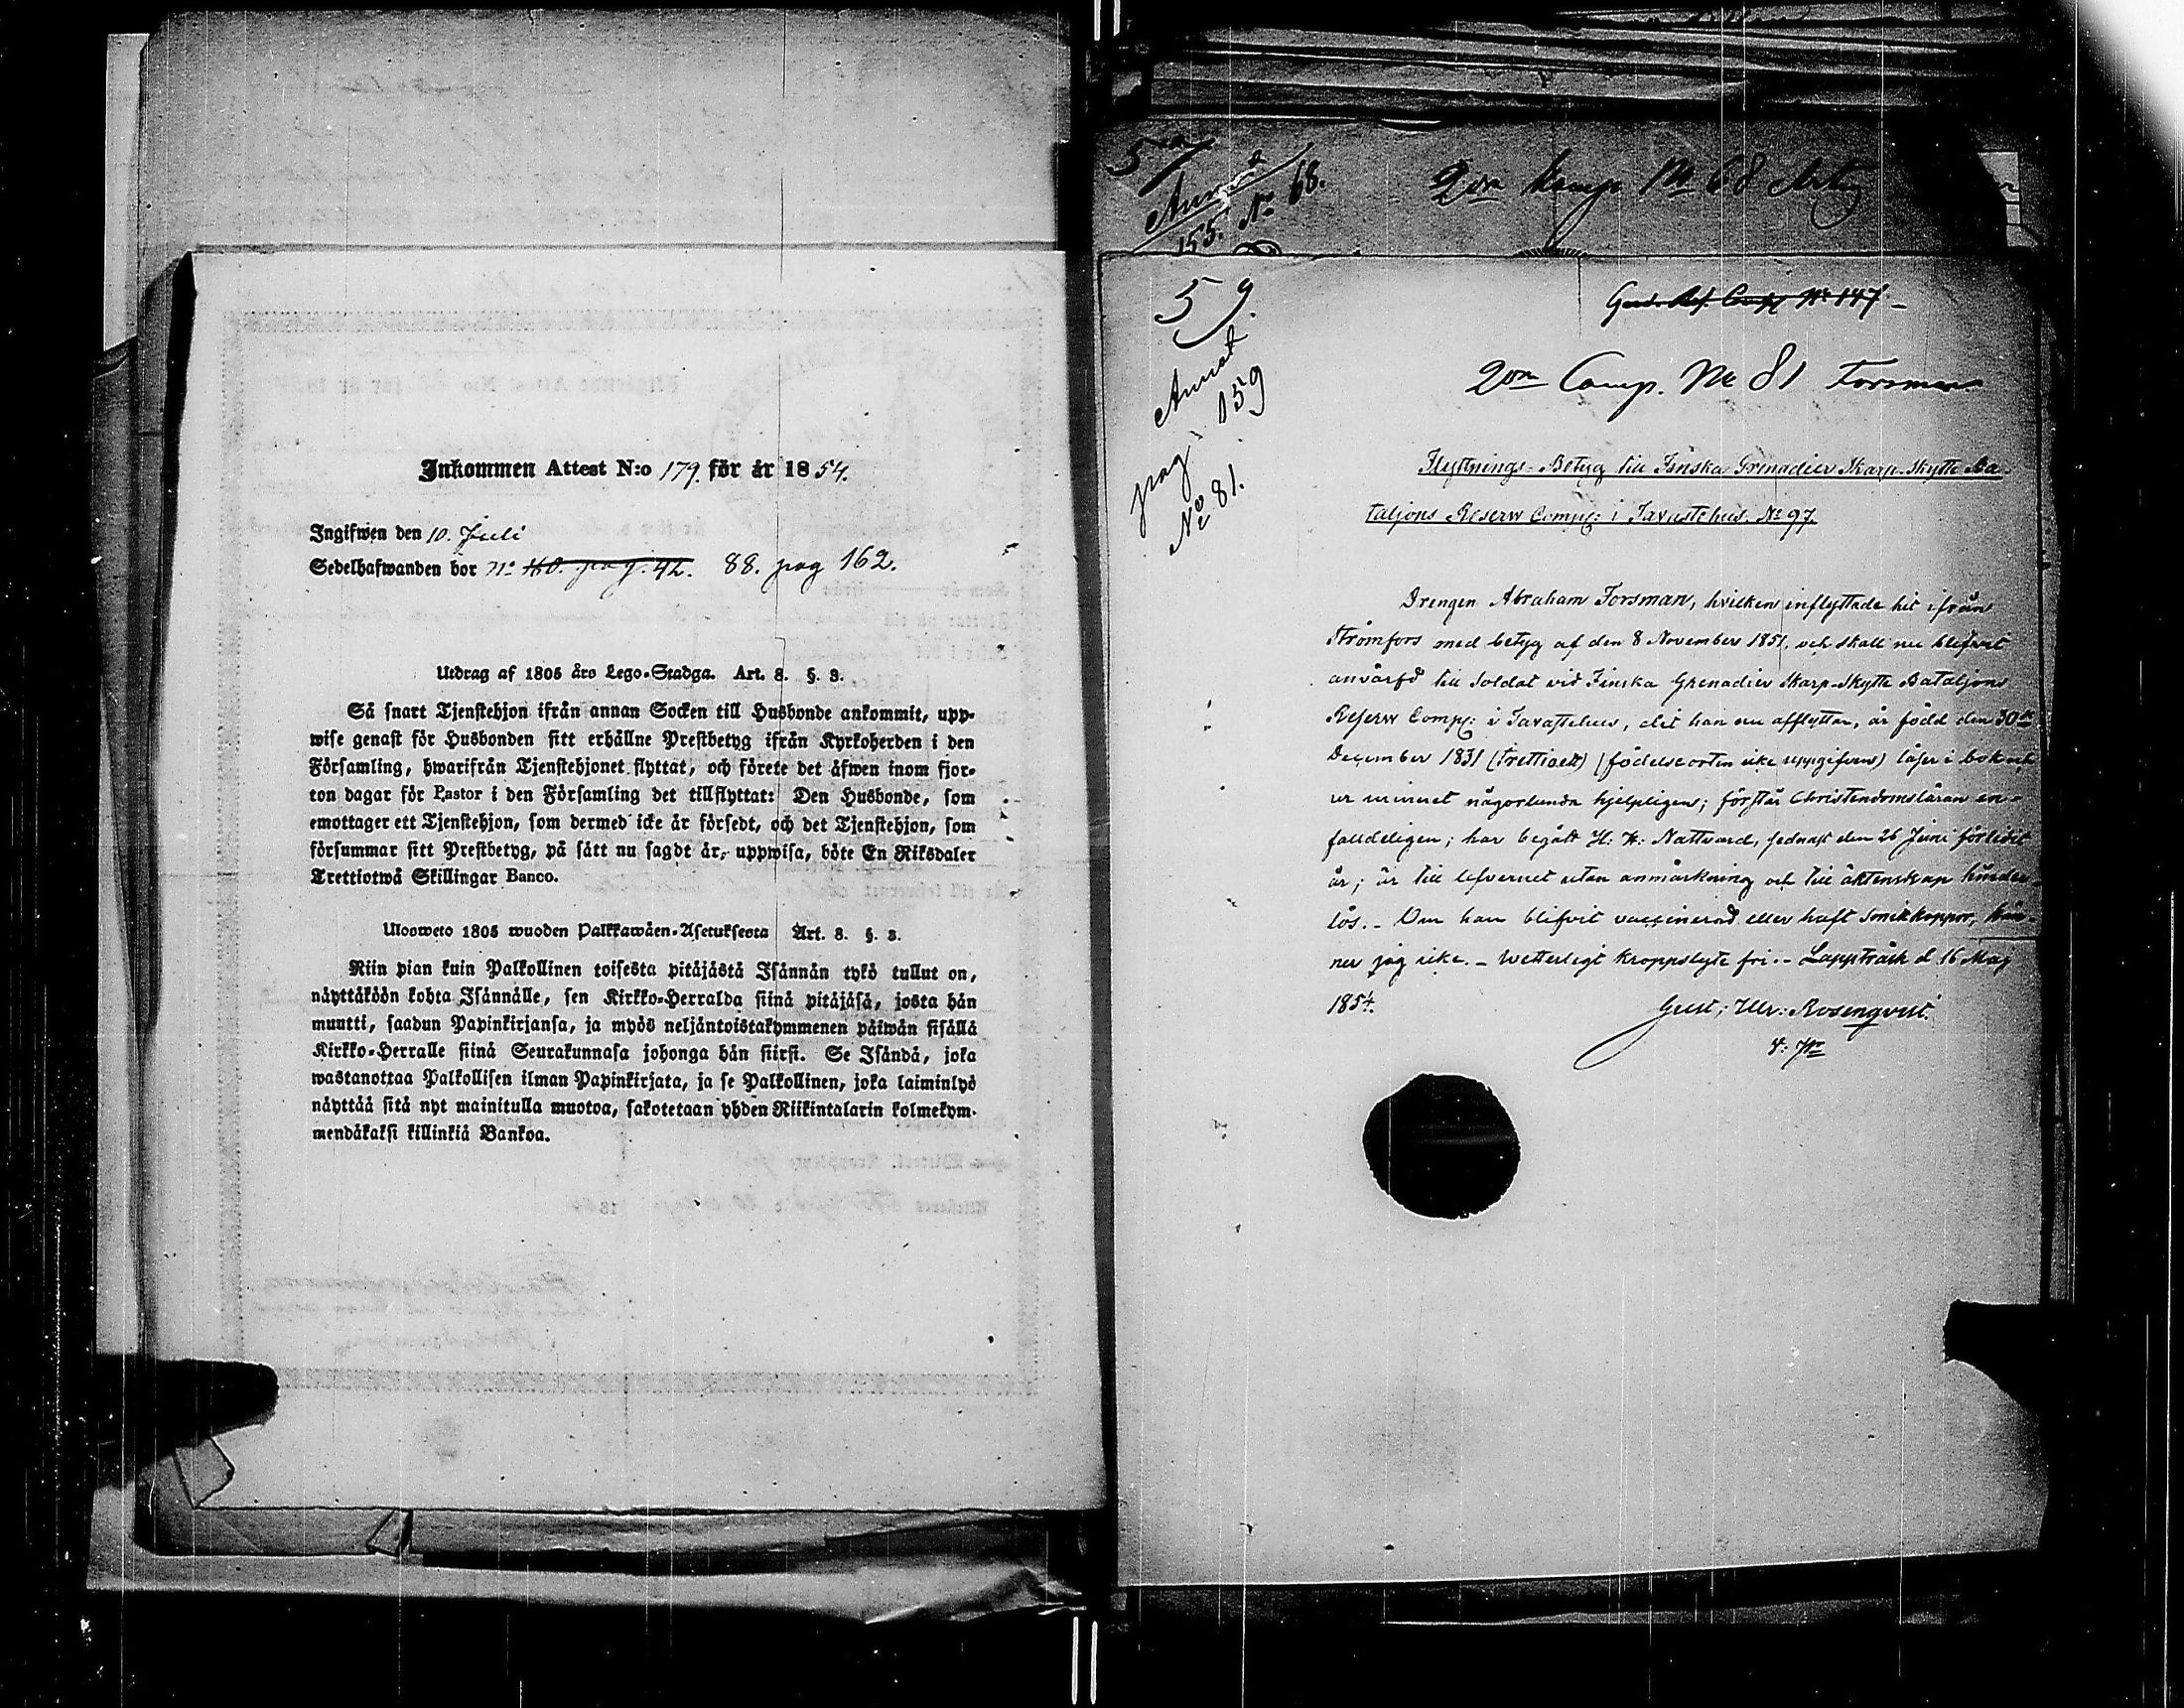 Inkommen Attest N:o 179. för år 1854.
Ingifwen den 10. Juli
Sedelhafwanden bor N:o 110. pag. 42. 88. pag 162.
Utdrag af 1805 års Lego-Stadga. Art. 8. §. 3.
Så snart Tjenstehjon ifrån annan Socken till Husbonde ankommit, upp-
wise genast för Husbonden sitt erhållne Prestbetyg ifrån Kyrkoherden i den
Församling, hwarifrån Tjenstehjonet flyttat, och förete det äfwen inom fjor-
ton dagar för Pastor i den Församling det tillflyttat: Den Husbonde, som
emottager ett Tjenstehjon, som dermed icke är försedt, och det Tjenstehjon, som
försummar sitt Prestbetyg, på sätt nu sagdt är, uppwisa, böte En Riksdaler
Trettiotwå Skillingar Banco.
Ulosweto 1805 wuoden Palkkawäen-Asetuksesta Art. 8. §. 3.
Niin pian kuin Palkollinen toisesta pitäjästä Isännän tykö tullut on,
näyttäköön kohta Isännälle, sen Kirkko-Herralda siinä pitäjäsä, josta hän
muutti, saadun Papinkirjansa, ja myös neljäntoistakymmenen päiwän sisällä
Kirkko-Herralle siinä Seurakunnasa johonga hän siirsi. Se Isändä, joka
wastanottaa Palkollisen ilman Papinkirjata, ja se Palkollinen, joka laiminlyö
näyttää sitä nyt mainitulla muotoa, sakotetaan yhden Riikintalarin kolmekym-
mendäkaksi killinkiä Bankoa.
155. No 68.
2dra Komp No 68
59.
Annot
pag 159
No 81.
Comp No 147
2dra Comp. No 81 Forsman
Flyttnings-Betyg till Finska Grenadier Skarp-Skytte Ba-
taljons Reserv Comp: i Tavastehus. No 97.
Drengen Abraham Forsman, hvilken inflyttade hit ifrån
Strömfors med betyg af den 8 November 1851, och skall nu blifvit
anvärfd till Soldat vid Finska Grenadier Skarp-Skytte Bataljons
Reserv Comp: i Tavastehus, dit han nu afflyttar, är född den 30de
December 1831 (trettioett) (födelseorten icke uppgifven) läser i bok och
ur minnet någorlunda hjelpligen; förstår Christendomsläran en-
faldeligen; har begått H. H: Nattvard, sednast den 26 Juni förledit
år; är till lefvernet utan anmärkning och till äktenskap hinder-
lös. - Om han blifvit vaccinerad eller haft Smittkoppor, kän-
ner jag icke. - Wetterligt kroppslyte fri. - Lappträsk d 16 Maj
1854.
Gust: Ulr: Rosenqvist.